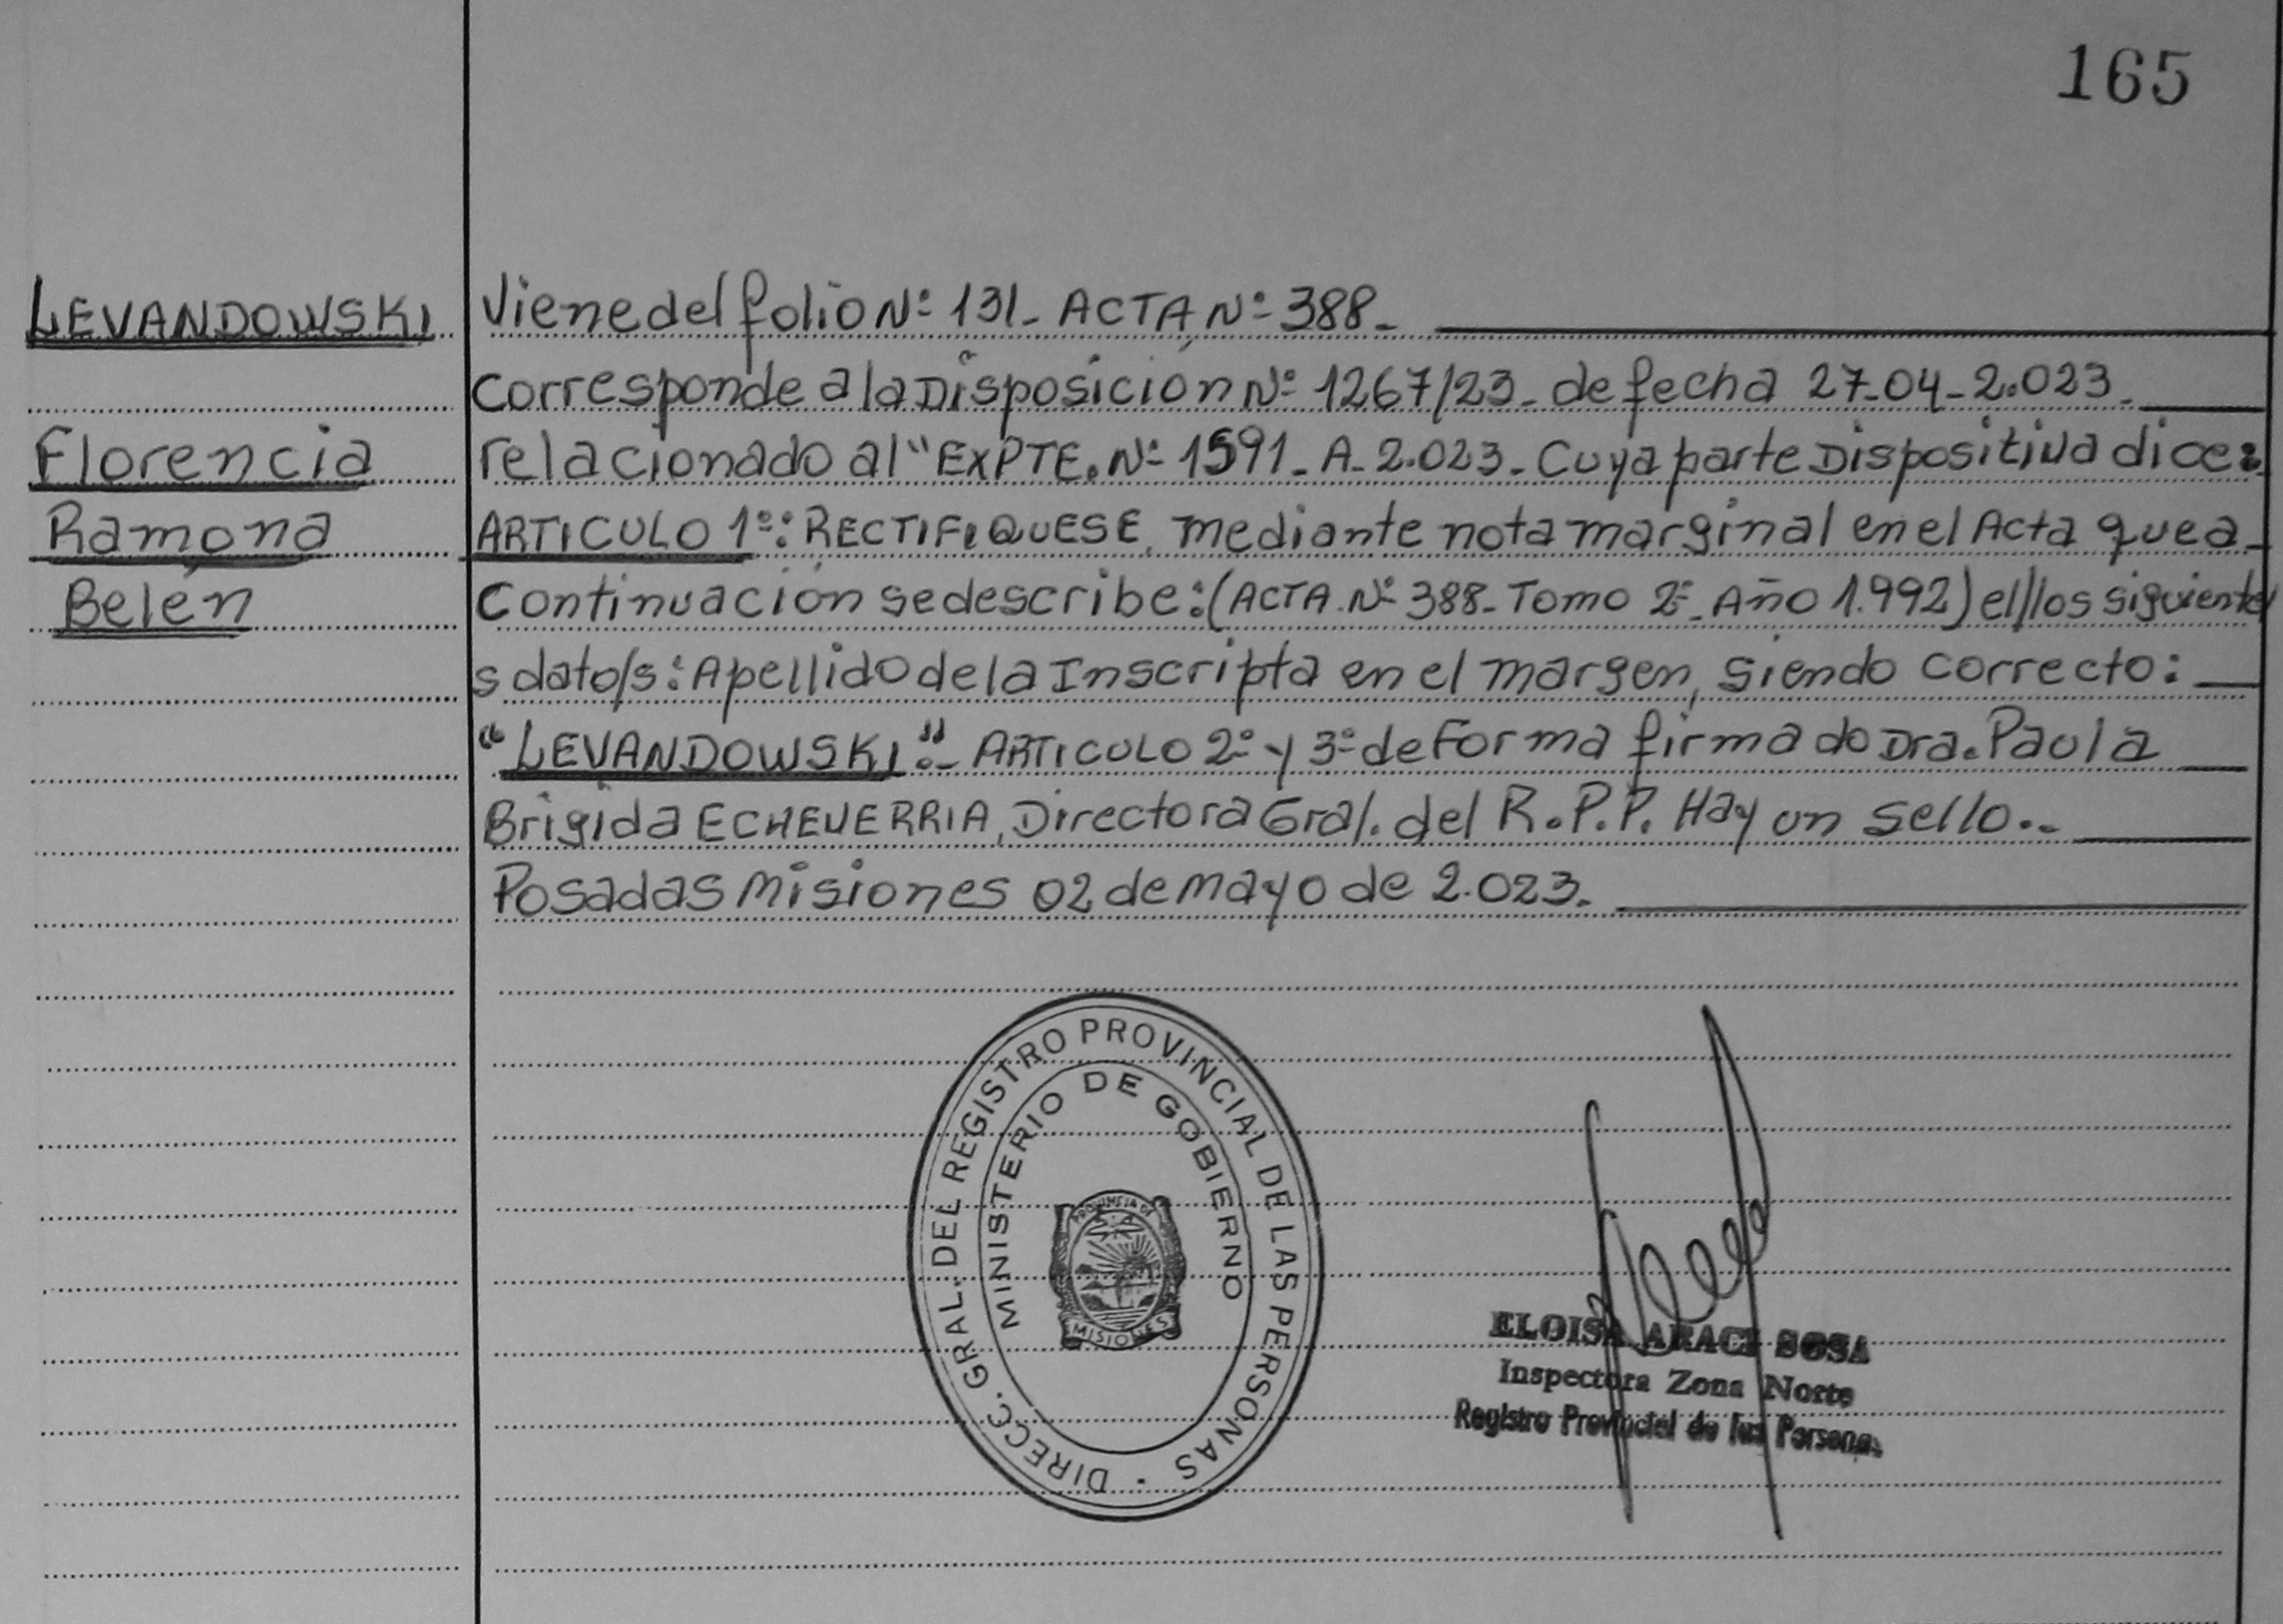 165
LEVANDOWSKI
Florencia
Ramona
Belén
Viene del folio Nº 131_ ACTA Nº 388_
Corresponde a la Disposición Nº 1267/23_ de fecha 27_04_2.023_
relacionado al "EXPTE. Nº 1591_A_2.023_ Cuya parte Dispositiva dice:
ARTICULO 1º: RECTIFIQUESE, mediante nota marginal en el Acta que a_
Continuación se describe: (ACTA. Nº 388_ Tomo 2º_ Año 1.992) el/los siguiente/
s dato/s: Apellido de la Inscripta en el margen, siendo correcto:
"LEVANDOWSKI"._ ARTICULO 2º y 3º de Forma firmado Dra. Paula
Brígida ECHEVERRIA, Directora Gral. del R.P.P. Hay un sello._
Posadas Misiones 02 de mayo de 2.023_
DIRECC. GRAL. DEL REGISTRO PROVINCIAL DE LAS PERSONAS
MINISTERIO DE GOBIERNO
PROVINCIA DE
MISIONES
ELOISA ARACI SOSA
Inspectora Zona Norte
Registro Provincial de las Personas